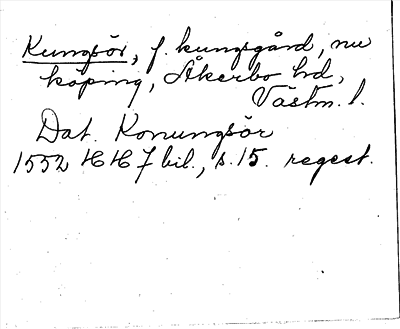 Kungsör, f. kungsgård, nu
köping, Åkerbo hd,
Västm. l.
Dat. Konungsör
1552 HH 7 bil., s. 15. regest.